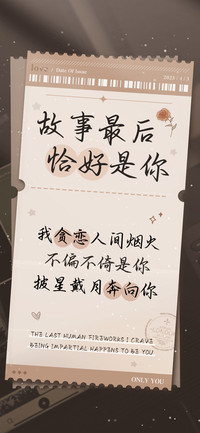 Date Of Issue
故事最后
恰好是你
我贪恋人间烟火
不偏不倚是你
披星戴月奔向你
THE LAST HUMAN FIREWORKS I CRAVE
BEING IMPARTIAL HAPPENS TO BE YOU
ONLY YOU